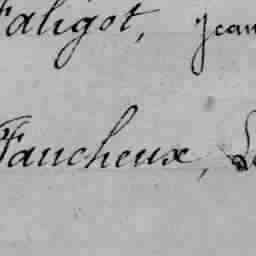 Faligot, Jean
Faucheux,